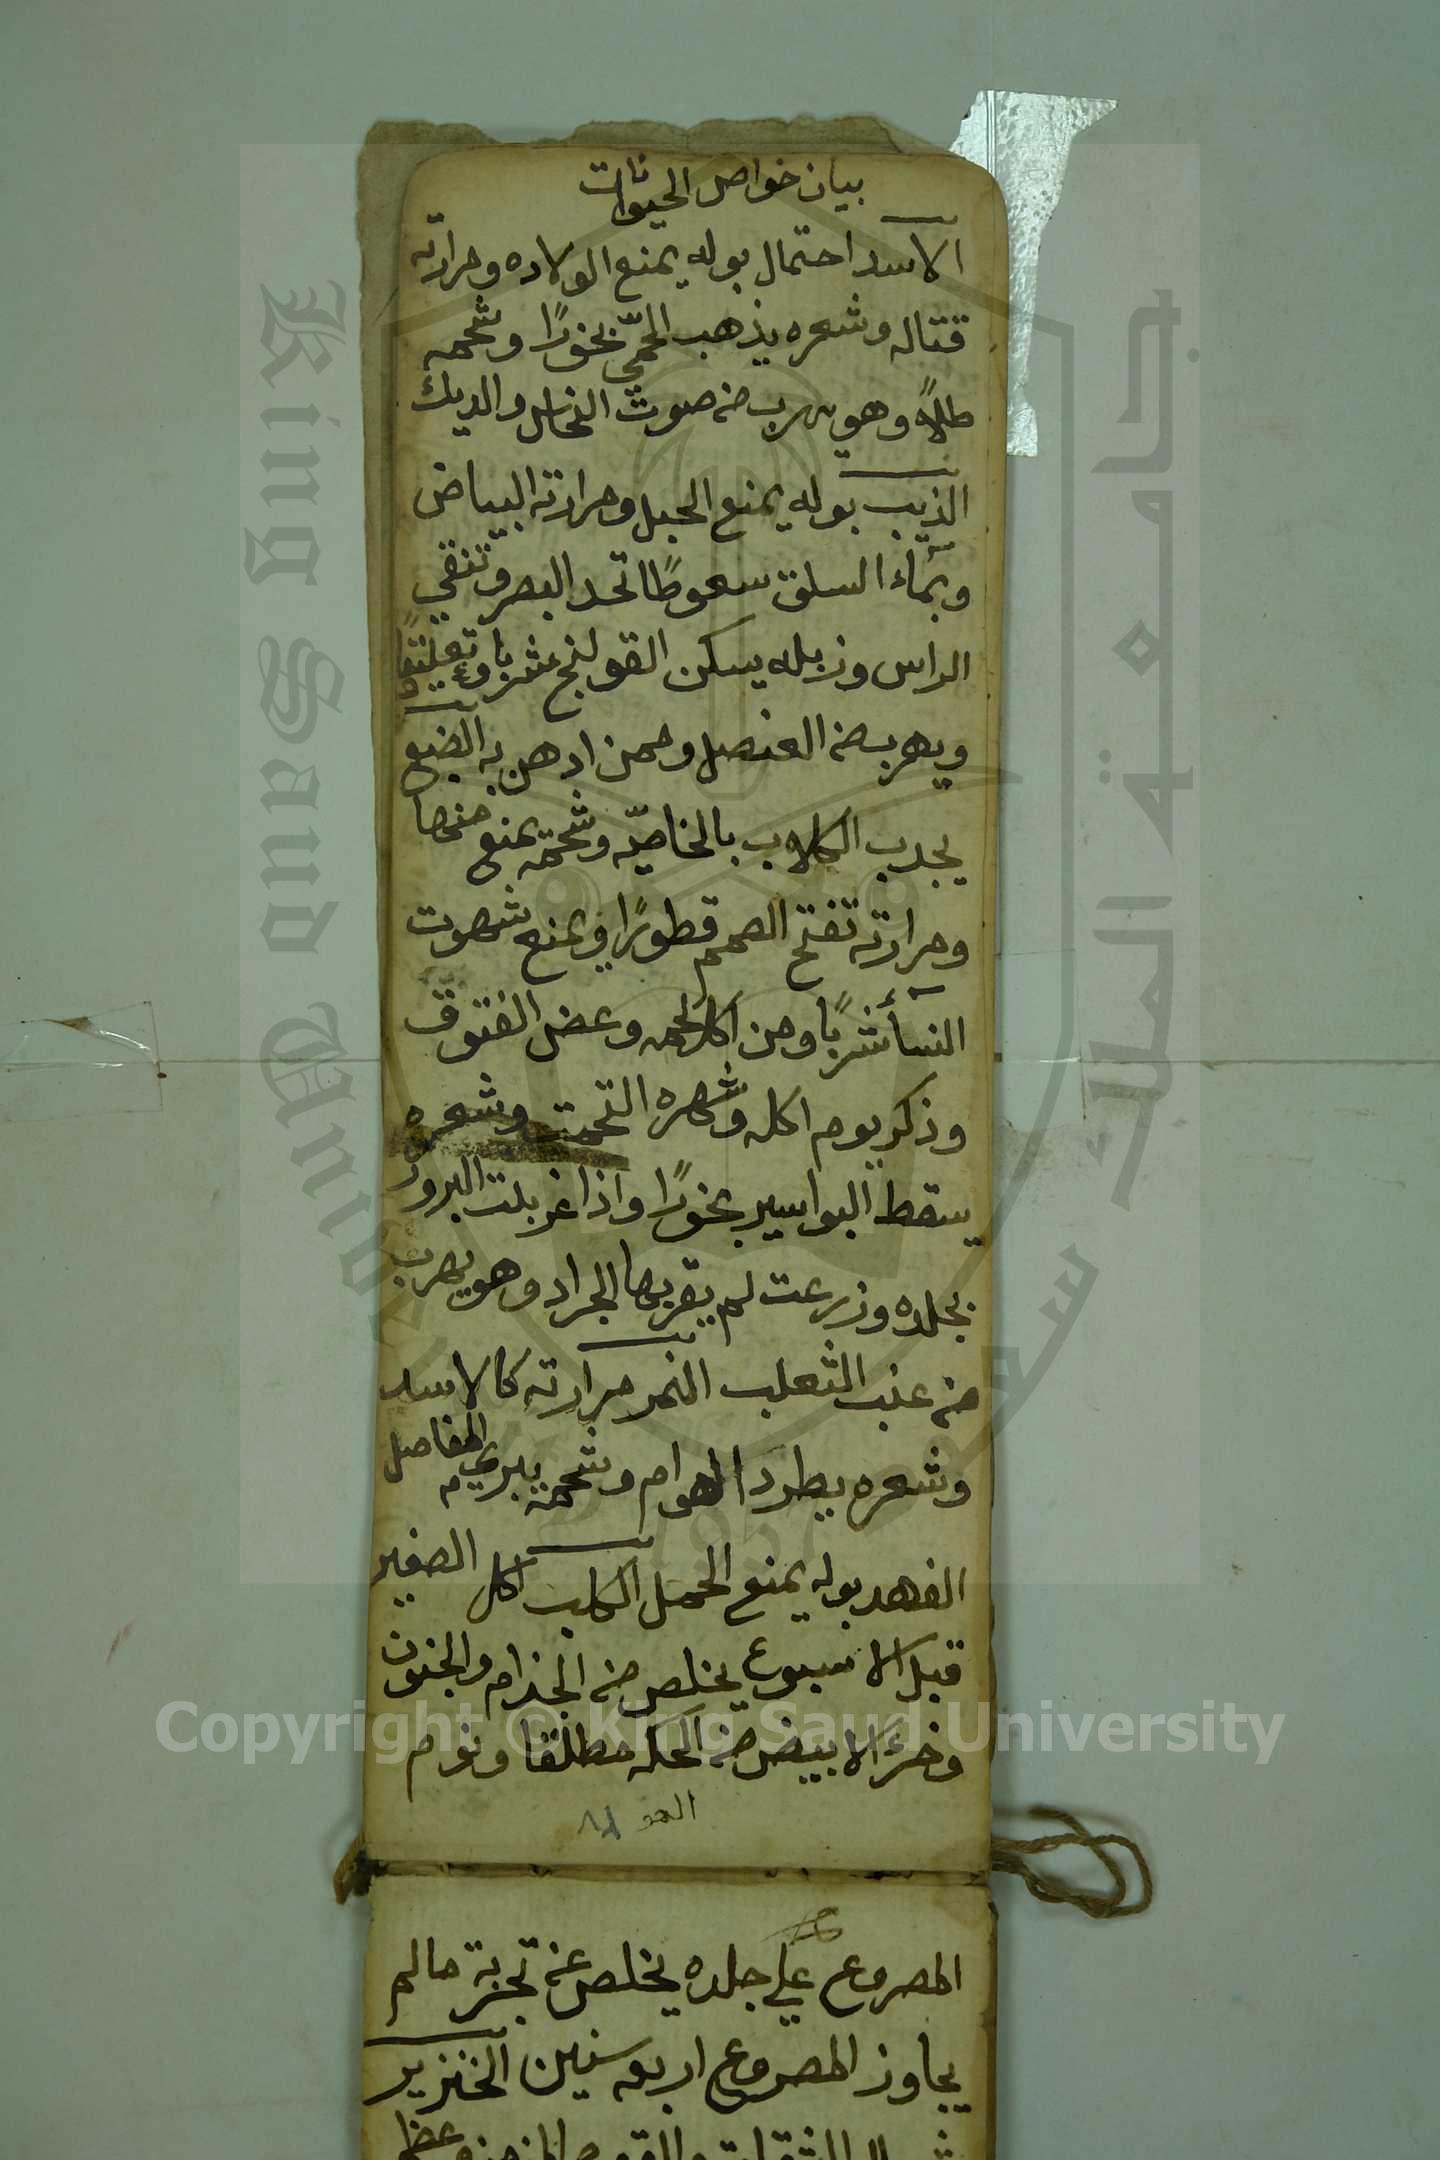 بيان خواص الحيوانات
الاسد احتمال بوله يمنع الولاده ومرارته
قتاله وشعره يذهب الحمّى بخورًا وشحمه
طلاءً وهو يهرب من صوت النحاس والديك
الذيب بوله يمنع الحبل ومرارته البياض
وبمآء السلق سعوطًا تحد البصر وتنقي
الراس وزبله يسكن القولنج شربا وتعليقًا
ويهرب من العنصل ومن ادهن به الضبع
يجدب الكلاب بالخاصيّه وشحمه يمنع
ومرارته تفتح الصمم قطورًا ويمنع شهوت
النسآ شربًا ومن اكل لحمه وعض الفتوق
وذكر يوم اكله وشهره التحمت وشعره
يسقط البواسير بخورًا واذا غربلت البزور
بجلده وزرعت لم يقربها الجراد وهو يهرب
من عنب الثعلب النمر مرارته كالاسد
وشعره يطرد الهوام وشحمه يبري المفاصل
الفهد بوله يمنع الحمل الكلب اكل الصغير
قبل الاسبوع يخلص من الجذام والجنون
وخرء الابيض من الحكه مطلقا ونوم
المصروع علي جلده يخلص عن تجربة مالم
يجاوز المصروع اربع سنين الخنزير
King Saud University
جامعة الملك سعود
1957
Copyright © King Saud University